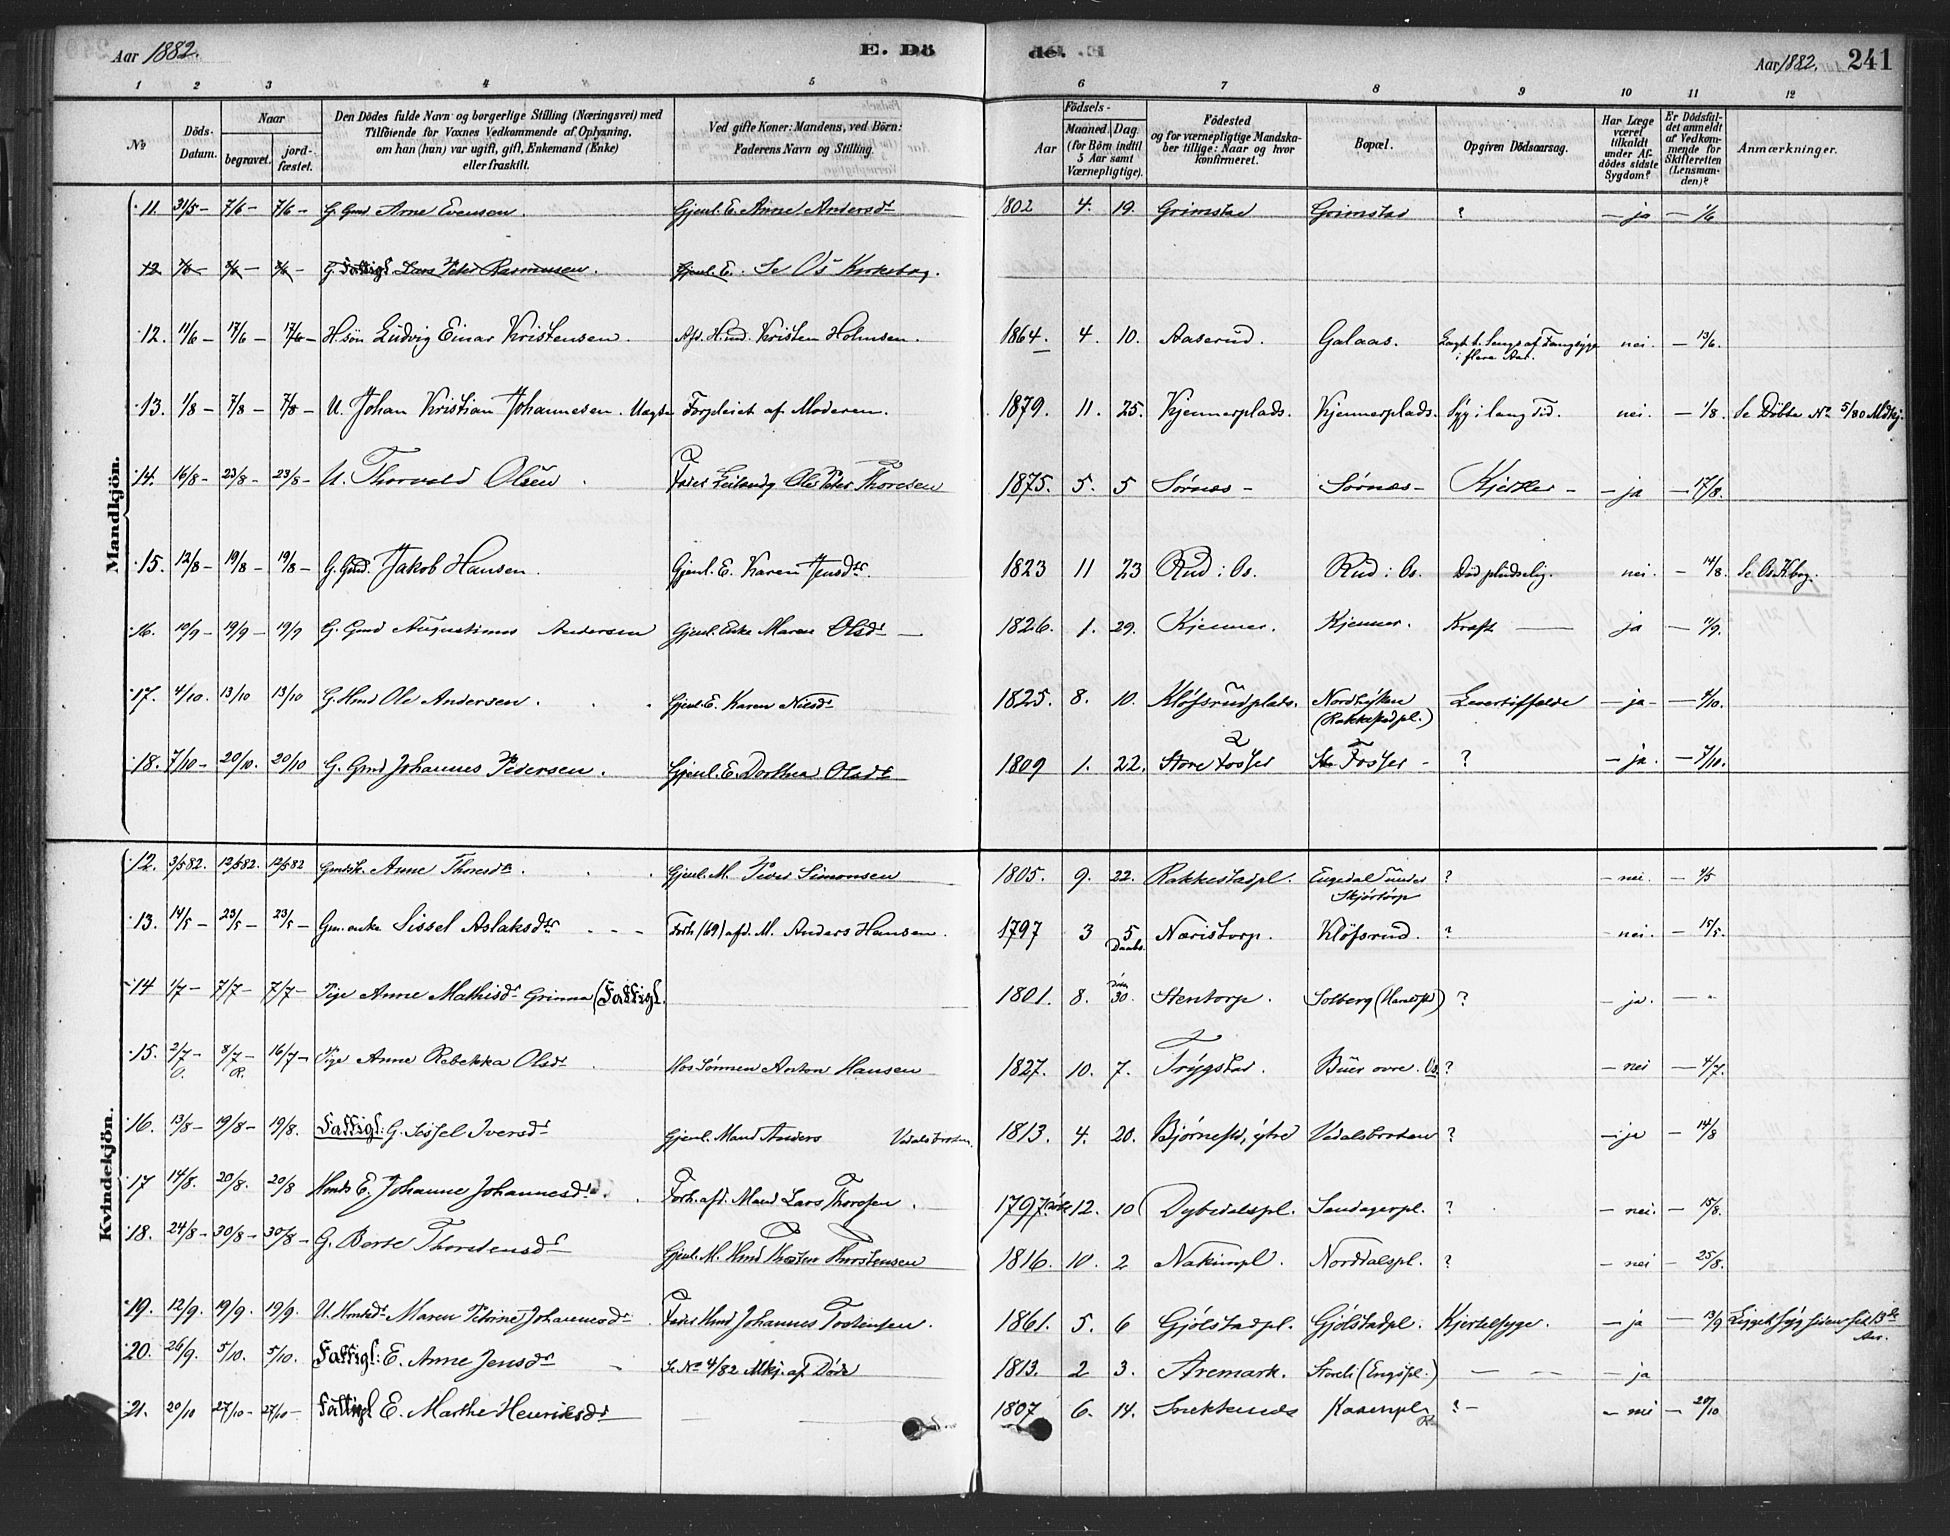 Aar 1882. E. Dö de. Aar 1882. 241
1 2 3 4 5 6 7 8 9 10 11 12
No Döds-Datum. Naar begravet. jordfæstet. Den Dödes fulde Navn og borgerlige Stilling (Næringsvei) med Tilföiende for Voxnes Vedkommende af Oplysning, om han (hun) var ugift, gift, Enkemand (Enke) eller fraskilt. Ved gifte Koner: Mandens, ved Börn: Faderens Navn og Stilling. Födsels- Aar Maaned. Dag. (for Börn indtil 5 Aar samt Værnepligtige). Födested og for værnepligtige Mandskaber tillige: Naar og hvor konfirmeret. Bopæl. Opgiven Dödsaarsag. Har Læge været tilkaldt under Afdödes sidste Sygdom? Er Dödsfaldet anmeldt af Vedkommende for Skifteretten (Lensmanden)? Anmærkninger.
Mandkjön.
11. 31/5 - 7/6 - 7/6 - G. Gmd Arne Evensen. Gjenl. E. Anne Andersdr 1802 4. 19. Grimstad Grimstad ? - ja - 1/6
12 G. Fattigl Lars Peter Rasmussen. Gjenl. E. Se Os Kirkebog.
12. 11/6 - 17/6 - 17/6 - H. søn Ludvig Einar Kristensen. Afd. H.md. Kristen Holmsen. 1864. 4 10. Aaserud. Galaas. i flere Aar. nei. - 13/6.
13. 1/8 - 7/8 - 7/8 - U. Johan Kristian Johannesen. Uægte Forpleiet af Moderen. 1879. 11. 25. Kjennerplads. Kjennerplads. Syg i lang Tid. nei. - 1/8. Se Döbte No 5/80 Mdkj.
14. 16/8 - 23/8 - 23/8 - U. Thorvald Olsen Fader Leilændg Ole Peter Thoresen 1875. 5. 5 Sørnæs - Sørnæs - Kjertler - - ja - 17/8.
15. 12/8 - 19/8 - 19/8 - G. Gmd. Jakob Hansen. Gjenl. E. Karen Jensdtr. 1823 11 23 Rud i Os. Rud i Os. Död pludselig. nei. - 14/8. Se Os Kbog.
16. 10/9 - 19/9 - 19/9 G. Gmd Augustinus Andersen Gjenl. Enke Maren Olsdr 1826. 1. 29. Kjenner. Kjenner. Kræft ja - 11/9.
17. 4/10. 13/10 13/10 G. Hmd Ole Andersen. Gjenl. E. Karen Nilsdr 1825. 8. 10. Kløfsrudplads. (Rakkestadpl.) - ja - - 4/10.
18. 7/10 - 20/10. 20/10 G. Gmd Johannes Pedersen. Gjenl. E. Dorthea Olsdr 1809 1. 22. Store Fosser St. Fosser - ? - ja. - 7/10.
Kvindekjön.
12. 3/5 82. 12/5 82. 12/5 82 Anne Thoresdtr. Gjenl. M. Peder Simonsen 1805. 9. 22. Rakkestadpl. Engedal under Skjørtorp ? - nei. - 4/5
13. 14/5 - 23/5 - 23/5 - Gm. enke Sissel Aslaksdtr Forh. (69) afd. M. Anders Hansen. 1797 3 5 Daabs. Næristorp. Kløfsrud. ? - nei. - 15/5.
14 1/7 - 7/7 - 7/7 - Pige Anne Mathisdr Grimna (Fattigl. 1801. 8. 30. Stentorp. Solberg (Haralstd) ? - ja. -
15. 2/7 - 8/7 - R. 16/7 - Pige Anne Rebekka Olsdr Hos Sønnen Anton Hansen 1827. 10. 7. Trygstad. Buer øvre. Os. ? - nei - 4/7.
16. 13/8 - 19/8 - 19/8. Fattigl: G. Sissel Iversdr Gjenl. Mand Anders Vidalsbraten. 1813. 4. 20. Bjørnestd, ytre Vidalsbraten ? - ja - 14/8
17 14/8. 20/8. 20/8 Hmds E. Johanne Johannesdr. Forh. afd. Mand Lars Thoresen. 1797 12. 10 Dybedalspl. Sandagerpl. ? - nei. - 15/8.
18. 24/8 - 30/8 - 30/8 - G. Berte Thorstensdr Gjenl. M. Hmd Thosten Thorstensen 1816. 10. 2 Nakimpl. Norddalspl. ? - nei - 25/8.
19. 12/9. 19/9. 19/9. U. Maren Petrine Johannesdr Fader Hmd Johannes Tostensen. 1861. 5. 6 Gjølstadpl. Gjølstadpl. Kjertelsyge. - ja - 13/9 Ligget syg siden sit 13de Aar.
20. 26/9. 5/10. 5/10. Fattigl: E. Anne Jensdr Se No 4/82 Mkj. af Døde 1813. 2 3. Aremark. Storeli (Engspl.) - - - ja
21. 20/10 27/10 - 27/10 - Fattigl E. Marthe Henriksdr 1807 6. 14. Snektenæs Kasenpl R. ? - - nei - 20/10